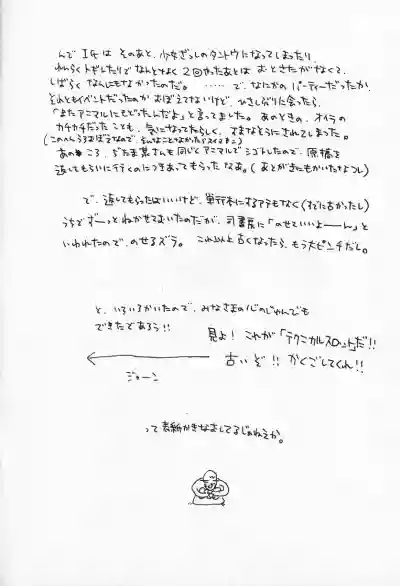 んで I氏は そのあと、少女ざっしのタントウになってしまったり、
れんらくトダエしたりで なんとなく 2回やったあとは おとさたがなくて、
しばらく なんにもなかったのだ。 …… で、なにかの パーティーだったか、
それともイベントだったのか おぼえてないけど、ひさしぶりに会ったら、
「またアニマルにもどったんだよ」と言ってました。あのときの、オイラの
カチカチだったことも、気になってたらしく、すまなそうにされてしまった。
(このへんうろおぼえなので、
あの ころ、ぢたま某さんも同じく アニマルで シゴトしたので、原稿を
返してもらいに行くのにつきあってもらったなぁ。(あとがきにもかいたなコレ)
で、返してもらったはいいけど、単行本にするアテもなく(すでに古かったし)
うちで ずーっと ねかせておいたのだが、司書房に「のせていいよーん」と
いわれたので、のせるズラ。 これ以上 古くなったら、もう大ピンチだし。
と、いろいろかいたので、みなさまの心のじゅんびも
できたであろう!!
見よ! これが「テクニカルスロット」だ!!
古いぞ!! かくごしてくれ!!
ジャーン
って 表紙かきなおしてるじゃねえか。